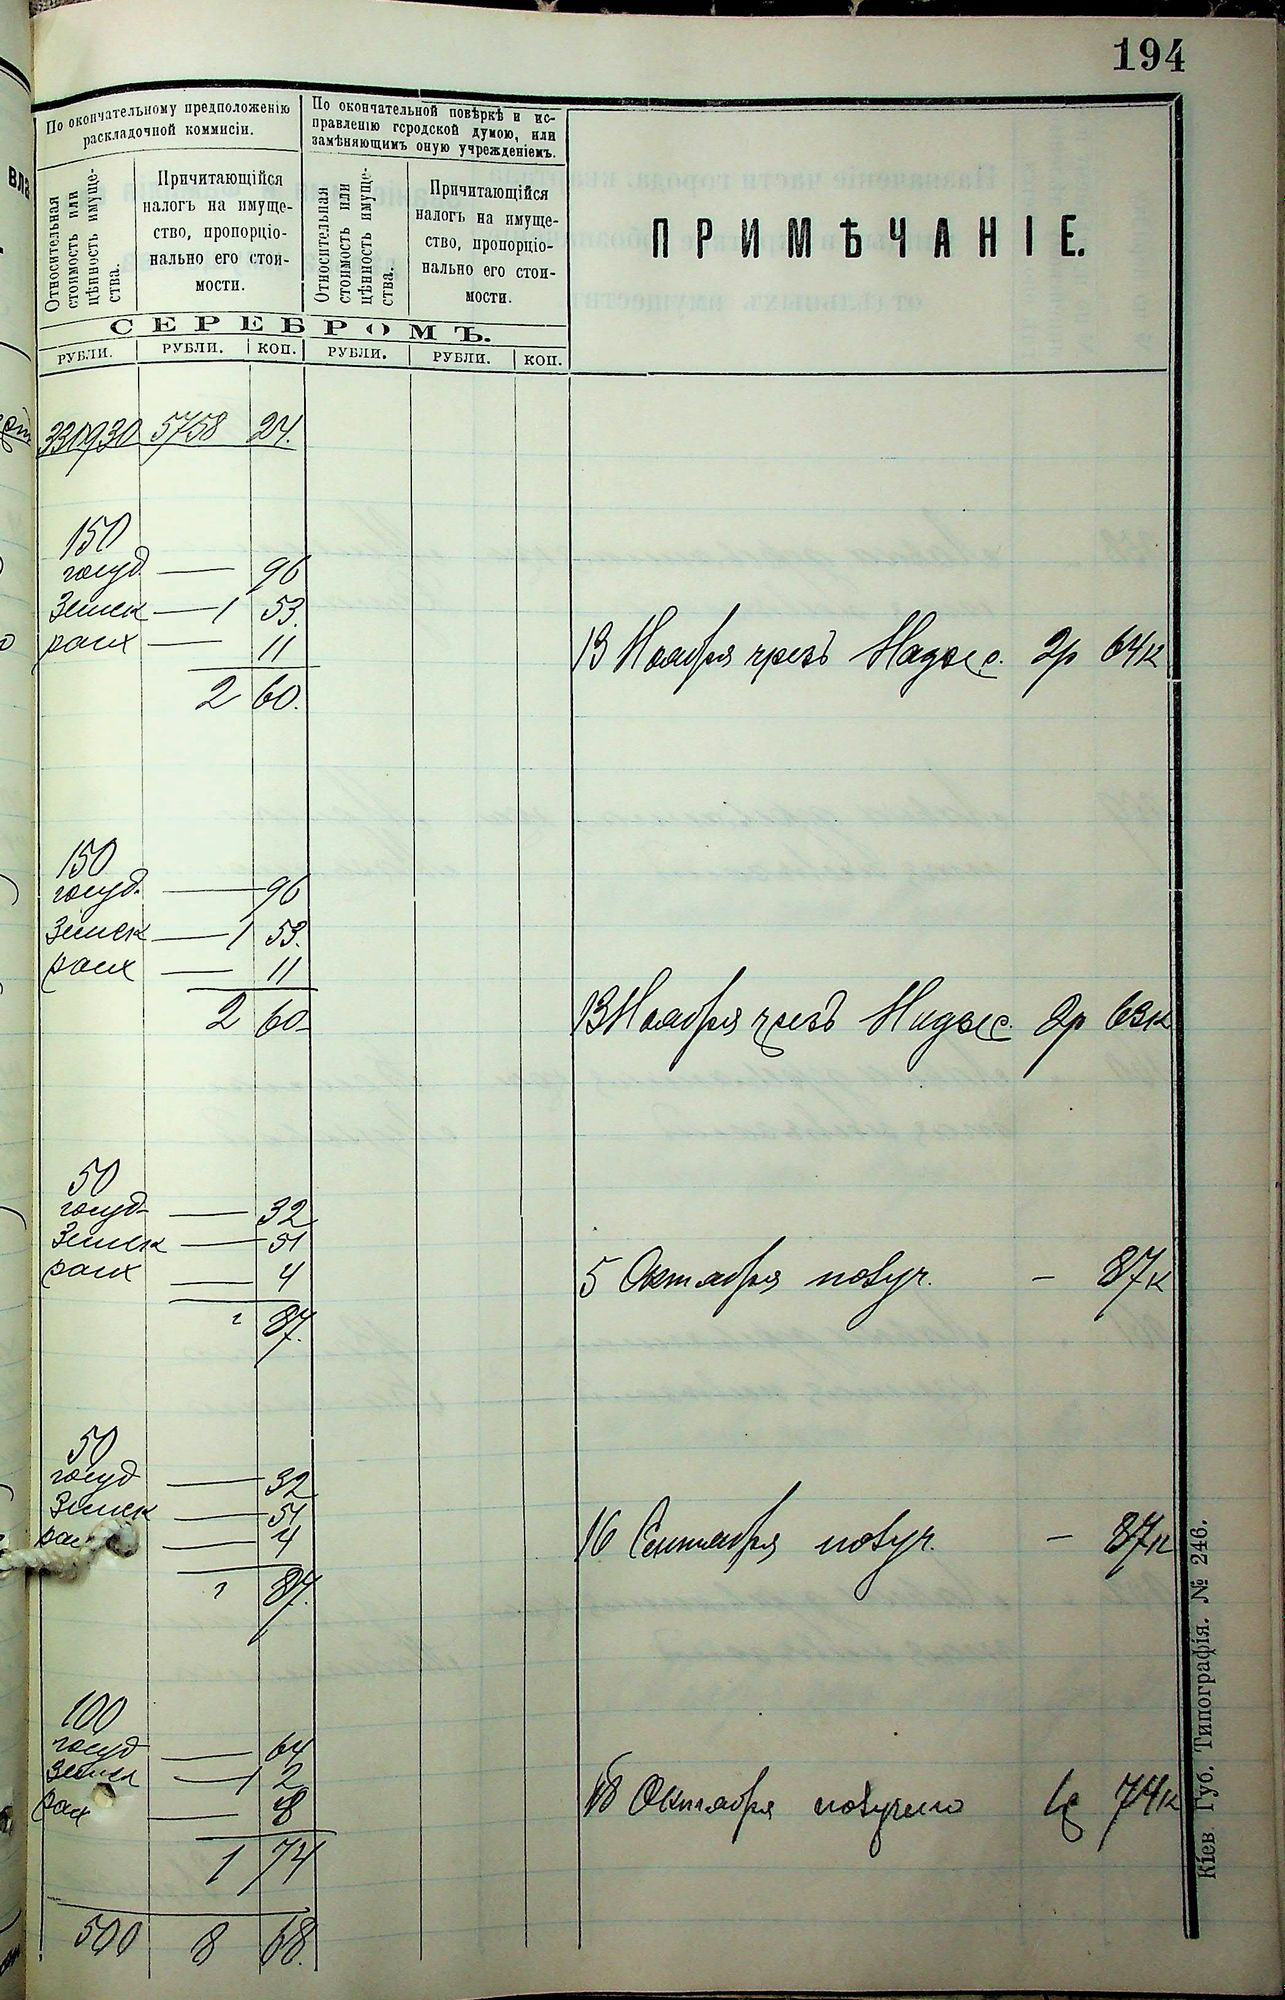 194
По окончательному предположенію
раскладочной коммисіи.
По окончательной повѣркѣ и ис-
правленію городской думою, или
замѣняющимъ оную учрежденіемъ.
Относительная
стоимость или
цѣнность имуще-
ства.
Причитающійся
налогъ на имуще-
ство, пропорціо-
нально его стои-
мости.
Относительная
стоимость или
цѣнность имуще-
ства.
Причитающійся
налогъ на имуще-
ство, пропорціо-
нально его стои-
мости.
ПРИМѢЧАНІЕ.
СЕРЕБРОМЪ.
РУБЛИ. РУБЛИ. КОП. РУБЛИ. РУБЛИ. КОП.
331930 5758 24.
150
госуд. — 96
Земск — 1 53.
расх — 11
13 Ноября чрезъ Надзс. 2р 64к
2 60.
150
госуд. — 96
Земск — 1 53.
расх — 11
2 60
13 Ноября чрезъ Надзс. 2р 63к
50
госуд — 32
Земск — 51
расх — 4
5 Октября получ. — 87к
87.
50
госуд — 32
Земск — 51
4
16 Сентября получ. — 87к
87.
100
госуд — 64
Земск — 1 2
рах — 8
18 Октября получено 1р 74к
1 74
500 8 68.
Кіев. Губ. Типографія. № 246.